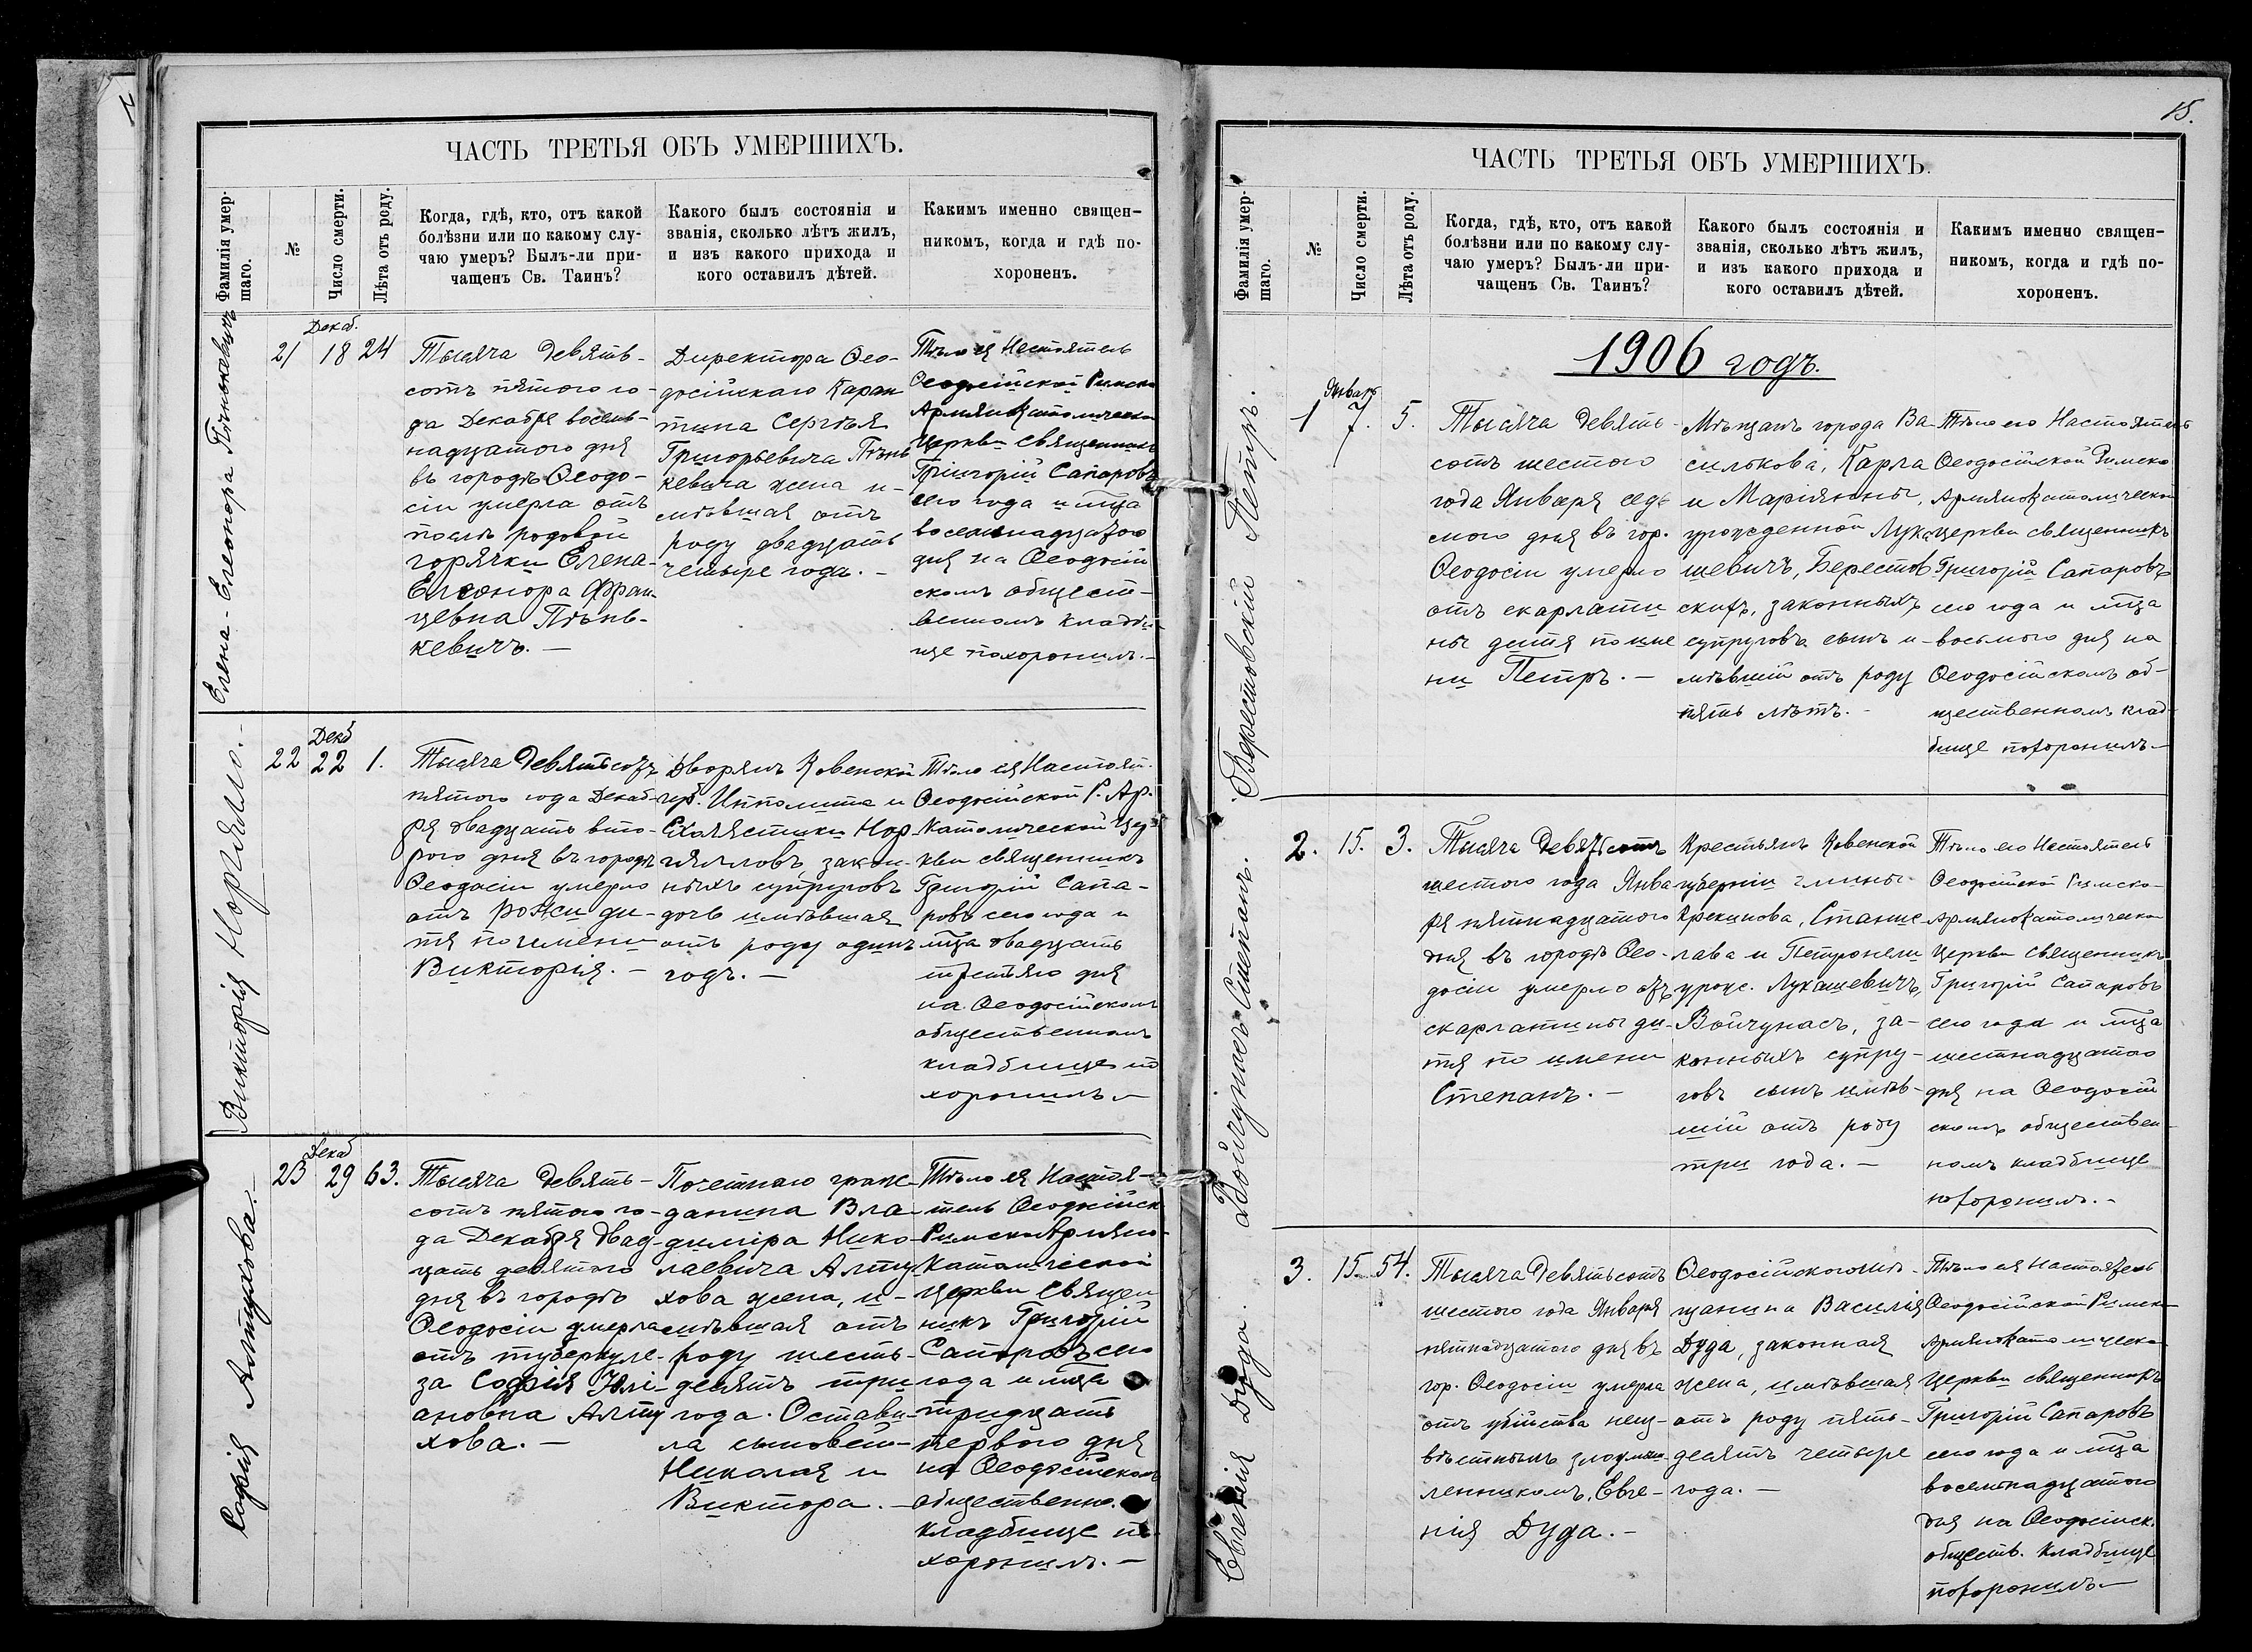 15.
ЧАСТЬ ТРЕТЬЯ ОБЪ УМЕРШИХЪ.
Фамилія умер-
шаго.
№
Число смерти.
Лѣта отъ роду.
Когда, гдѣ, кто, отъ какой
болѣзни или по какому слу-
чаю умеръ? Былъ-ли при-
чащенъ Св. Таинъ?
Какого былъ состоянія и
званія, сколько лѣтъ жилъ,
и изъ какого прихода и
кого оставилъ дѣтей.
Какимъ именно священ-
никомъ, когда и гдѣ по-
хороненъ.
Елена-Елеонора Пѣнькевичъ
21
Декаб.
18
24
Тысяча девять-
сотъ пятого го-
да Декабря восем-
надцатого дня
въ городѣ Ѳеодо-
сіи умерла отъ
послѣ родовой
горячки Елена-
Елеонора Фран-
цевна Пѣнь-
кевичъ. –
Директора Ѳео-
досійскаго Каран
тина Сергѣя
Григорьевича Пѣнь
кевича жена и-
мѣвшая отъ
роду двадцать
четыре года. –
Тѣло ея Настоятель
Ѳеодосійской Римско
Армянокатолической
Церкви Священникъ
Григорій Сапаровъ
сего года и мѣца
восемнадцатого
дня на Ѳеодосій
скомъ общест-
венномъ кладби-
ще похоронилъ. –
Викторія Норгялло. –
22
Декб
22
1.
Тысяча девятьсотъ
пятого года Декаб-
ря двадцать вто-
рого дня въ городѣ
Ѳеодосіи умерло
отъ рожи ди-
тя по имени
Викторія. –
Дворянъ Ковенской
губ. Ипполита и
Схолястики Нор-
гялловъ, закон-
ныхъ супруговъ
дочь имѣвшая
отъ роду одинъ
годъ. –
Тѣло ея Настоят.
Ѳеодосійской Р. Ар.
Католической Цер-
кви священникъ
Григорій Сапа-
ровъ сего года и
мѣца двадцать
третьяго дня
на Ѳеодосійскомъ
общественномъ
кладбище по
хоронилъ. –
Софія Алтухова. –
23
Декаб
29
63.
Тысяча девять-
сотъ пятого го-
да Декабря двад-
цать девятого
дня въ городѣ
Ѳеодосіи умерла
отъ туберкуле-
за Софія Юлі-
ановна Алту
хова. –
Почетнаго граж-
данина Вла-
диміра Нико-
лаевича Алту
хова жена, и-
мѣвшая отъ
роду шесть-
десятъ три
года. Остави-
ла сыновей-
Николая и
Виктора. –
Тѣло ея Настоя-
тель Ѳеодосійск
Римско Армяно-
Католической
Церкви Священ
никъ Григорій
Сапаровъ сего
года и мѣца
тридцать
первого дня
на Ѳеодосійскомъ
общественно.
кладбище по-
хоронилъ. –
ЧАСТЬ ТРЕТЬЯ ОБЪ УМЕРШИХЪ.
Фамилія умер-
шаго.
№
Число смерти.
Лѣта отъ роду.
Когда, гдѣ, кто, отъ какой
болѣзни или по какому слу-
чаю умеръ? Былъ-ли при-
чащенъ Св. Таинъ?
Какого былъ состоянія и
званія, сколько лѣтъ жилъ,
и изъ какого прихода и
кого оставилъ дѣтей.
Какимъ именно священ-
никомъ, когда и гдѣ по-
хороненъ.
1906 годъ.
Берестовскій Петръ.
1
Январь
7.
5.
Тысяча девять-
сотъ шестого
года Января седь
мого дня въ гор.
Ѳеодосіи умерло
отъ скарлати
ны дитя по име
ни Петръ. –
Мѣщанъ города Ва-
силькова, Карла
и Маріянны,
урожденной Лука-
шевичъ, Берестов
скихъ, законныхъ
супруговъ сынъ и-
мѣвшій отъ роду
пять лѣтъ. –
Тѣло его Настоятель
Ѳеодосійской Римско
Армянокатолической
церкви священникъ
Григорій Сапаровъ
сего года и мѣца
восьмого дня на
Ѳеодосійскомъ об-
щественномъ клад-
бище похоронилъ –
Войчунасъ Степанъ.
2.
15.
3.
Тысяча девятьсотъ
шестого года Янва
ря пятнадцатого
дня въ городѣ Ѳео-
досіи умерло отъ
скарлатины ди-
тя по имени
Степанъ. –
Крестьянъ Ковенской
губерніи
Станис-
лава и Петронели
урож. Лукашевичъ,
Войчунасъ, за-
конныхъ супру-
говъ сынъ имѣв-
шій отъ роду
три года. –
Тѣло его Настоятель
Ѳеодосійской Римско-
Армянокатолической
Церкви Священникъ
Григорій Сапаровъ
сего года и мѣца
шестнадцатого
дня на Ѳеодосій
скомъ обществен-
номъ кладбище
похоронилъ. –
Евгенія Дуда.
3.
15.
54.
Тысяча девятьсотъ
шестого года Января
пятнадцатого дня въ
гор. Ѳеодосіи умерла
отъ убійства неиз-
вѣстнымъ злоумыш-
ленникомъ, Евге-
нія Дуда. –
Ѳеодосійского мѣ-
щанина Василія
Дуда, законная
жена, имѣвшая
отъ роду пять-
десятъ четыре
года. –
Тѣло ея Настоятель
Ѳеодосійской Римско-
Армянокатолическо-
Церкви священникъ
Григорій Сапаровъ
сего года и мѣца
восемнадцатого
дня на Ѳеодосійск.
обществ. Кладбище
похоронилъ –